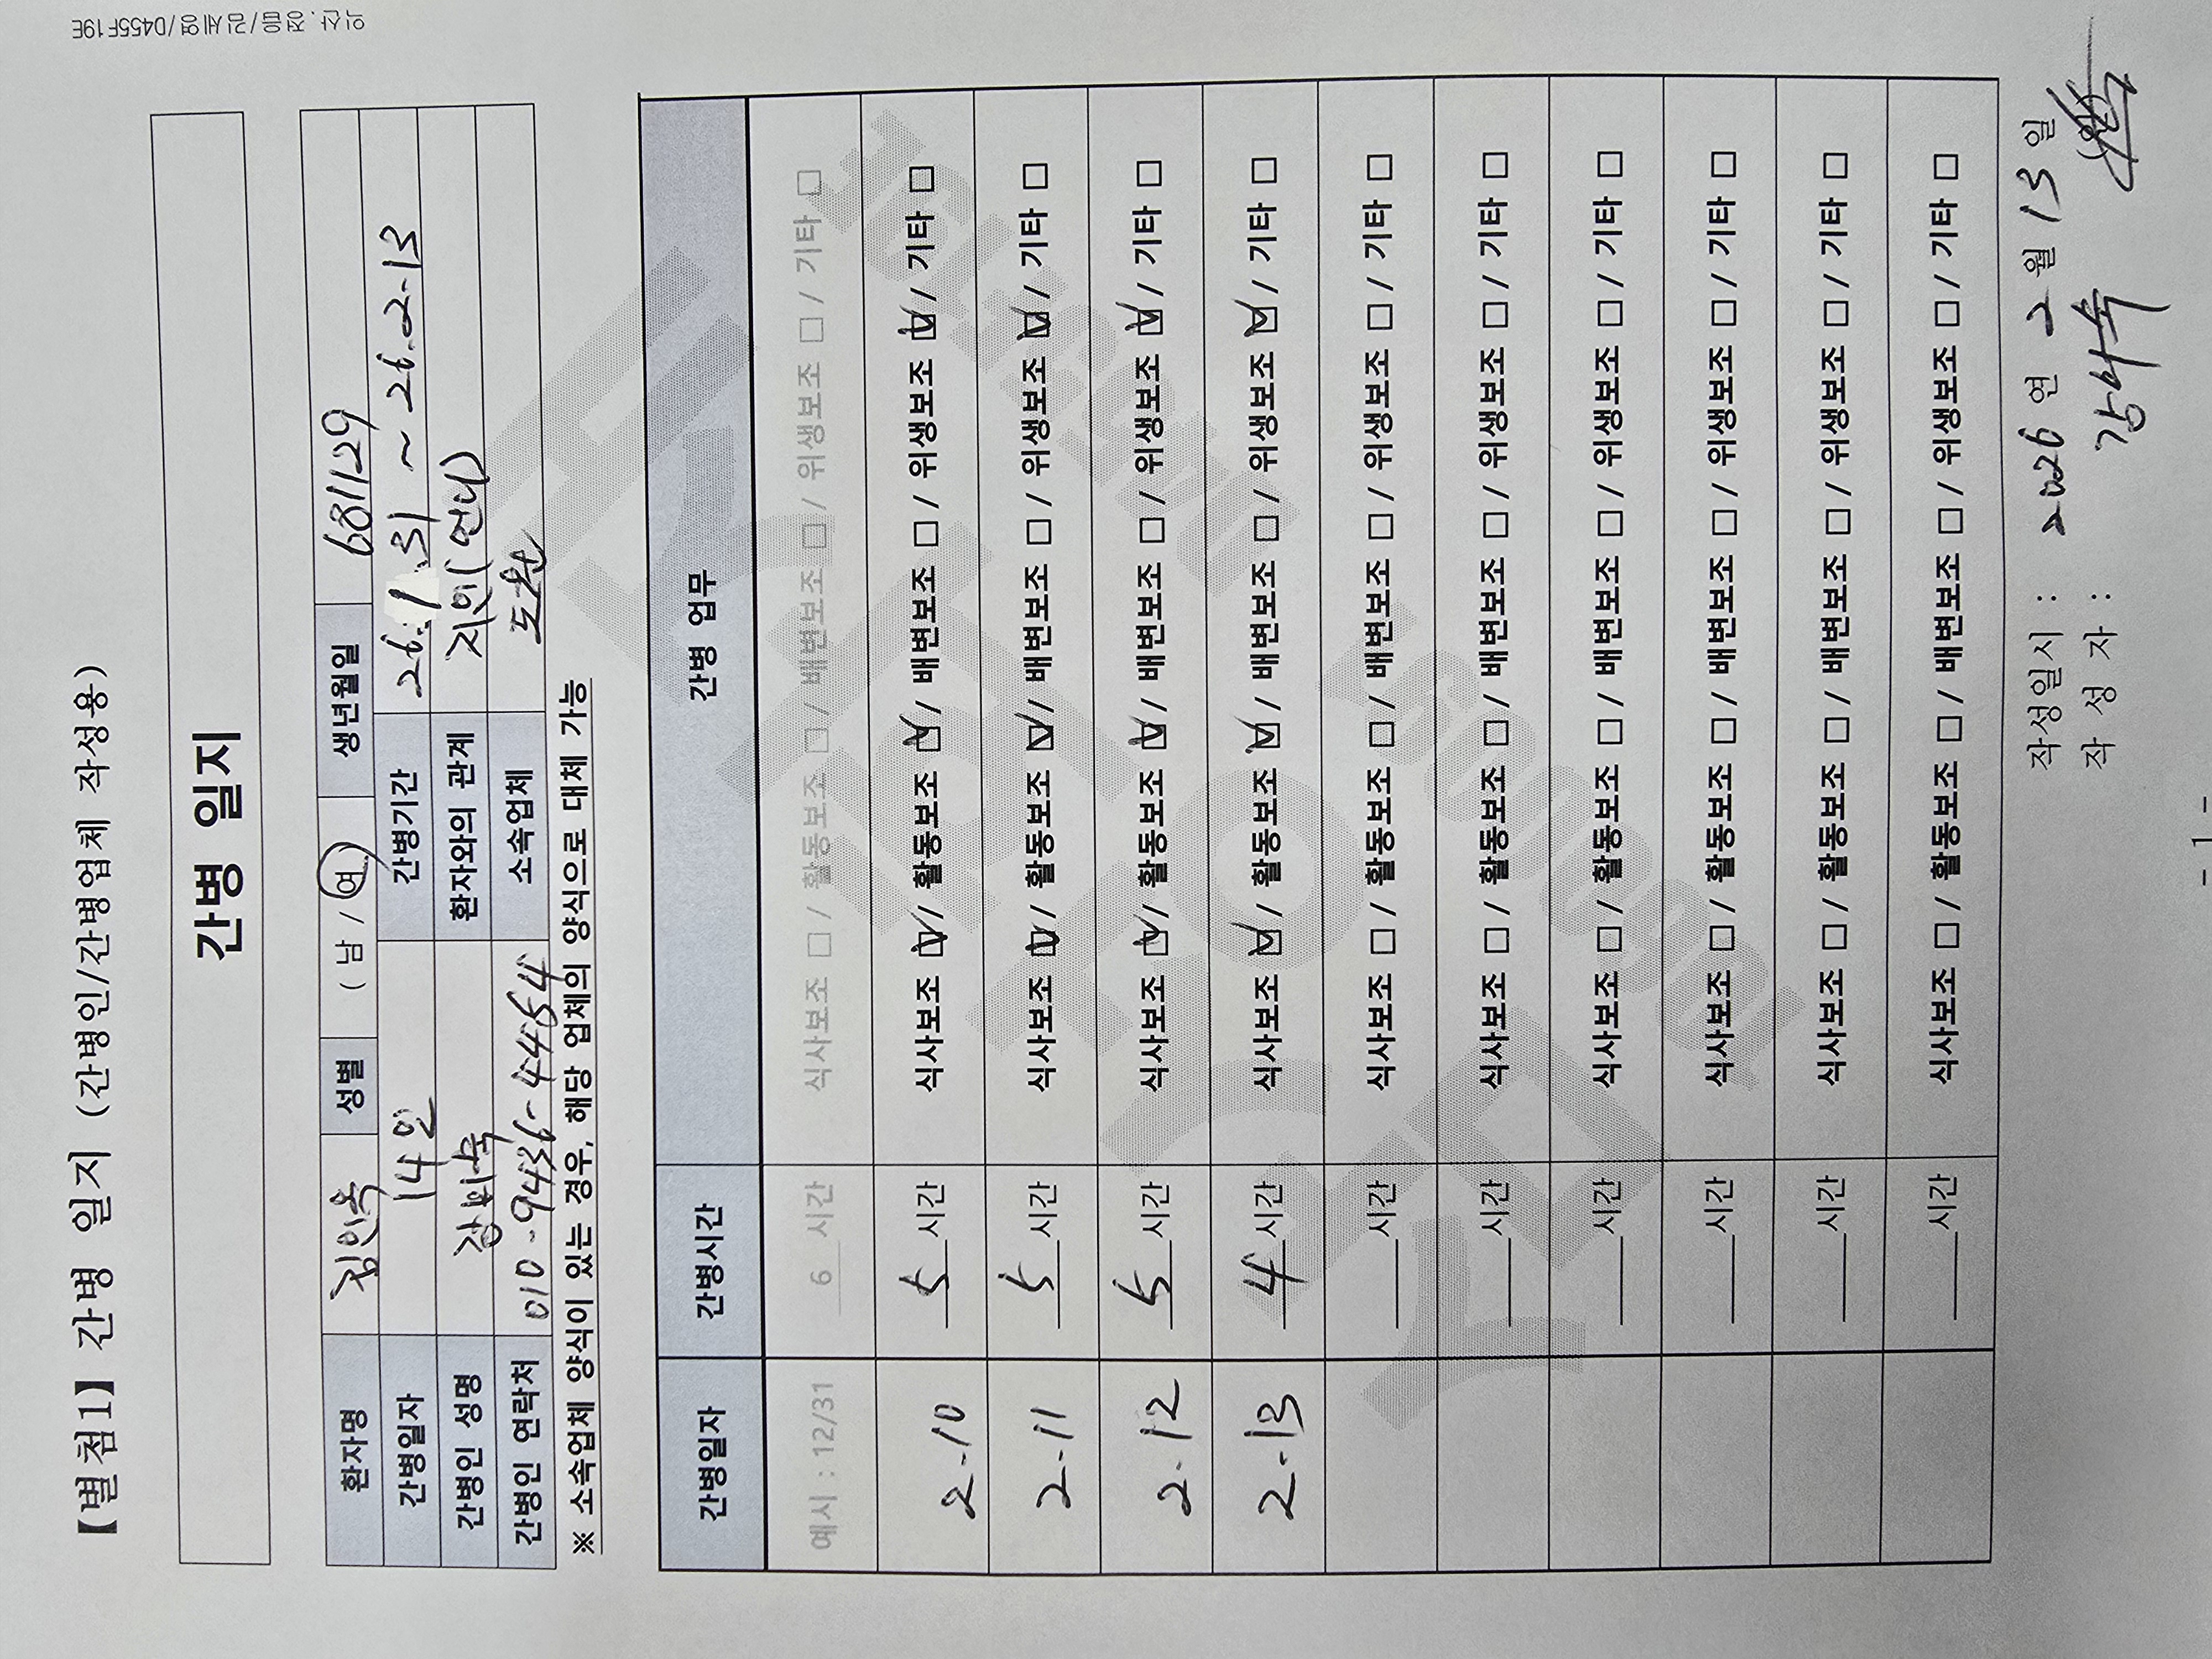 익산.정읍/김세영/D455F19E
【별첨1】 간병 일지 (간병인/간병업체 작성용)
간병 일지
환자명 김인옥 성별 ( 남 / 여 ) 생년월일 681129
간병일자 14일 간병기간 26.1.31 ~ 26.2.13
간병인 성명 환자와의 관계 지인(언니)
간병인 연락처 010-9436-4454 소속업체
※ 소속업체 양식이 있는 경우, 해당 업체의 양식으로 대체 가능
간병일자 간병시간 간병 업무
예시 : 12/31 6 시간 식사보조 □ / 활동보조 □ / 배변보조 □ / 위생보조 □ / 기타 □
2-10 5 시간 식사보조 ☑ / 활동보조 ☑ / 배변보조 □ / 위생보조 ☑ / 기타 □
2-11 5 시간 식사보조 ☑ / 활동보조 ☑ / 배변보조 □ / 위생보조 ☑ / 기타 □
2-12 5 시간 식사보조 ☑ / 활동보조 ☑ / 배변보조 □ / 위생보조 ☑ / 기타 □
2-13 4 시간 식사보조 ☑ / 활동보조 ☑ / 배변보조 □ / 위생보조 ☑ / 기타 □
시간 식사보조 □ / 활동보조 □ / 배변보조 □ / 위생보조 □ / 기타 □
시간 식사보조 □ / 활동보조 □ / 배변보조 □ / 위생보조 □ / 기타 □
시간 식사보조 □ / 활동보조 □ / 배변보조 □ / 위생보조 □ / 기타 □
시간 식사보조 □ / 활동보조 □ / 배변보조 □ / 위생보조 □ / 기타 □
시간 식사보조 □ / 활동보조 □ / 배변보조 □ / 위생보조 □ / 기타 □
시간 식사보조 □ / 활동보조 □ / 배변보조 □ / 위생보조 □ / 기타 □
작성일시 : 2026 연 2 월 13 일
작 성 자 : (인)
- 1 -